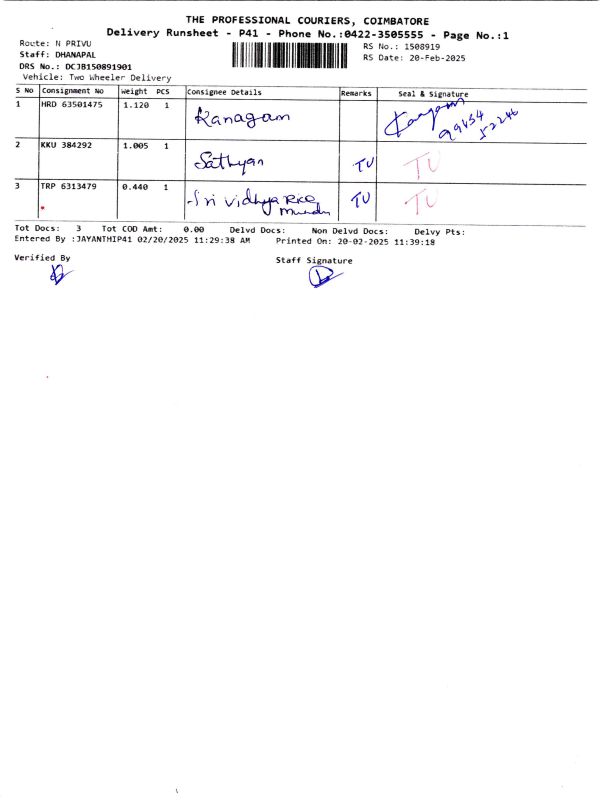 THE PROFESSIONAL COURIERS, COIMBATORE
Delivery Runsheet - P41 - Phone No.:0422-3505555 - Page No.:1
Route: N PRIVU
RS No.: 1508919
Staff: DHANAPAL
RS Date: 20-Feb-2025
DRS No.: DCJB150891901
Vehicle: Two Wheeler Delivery
S No Consignment No Weight PCS Consignee Details Remarks Seal & Signature
1 HRD 63501475 1.120 1 Kanagam
99434
52246
2 KKU 384292 1.005 1 Sathyan TU TU
3 TRP 6313479 0.440 1 Sri Vidhya Rice TU TU
*
Tot Docs: 3 Tot COD Amt: 0.00 Delvd Docs: Non Delvd Docs: Delvy Pts:
Entered By :JAYANTHIP41 02/20/2025 11:29:38 AM Printed On: 20-02-2025 11:39:18
Verified By
Staff Signature